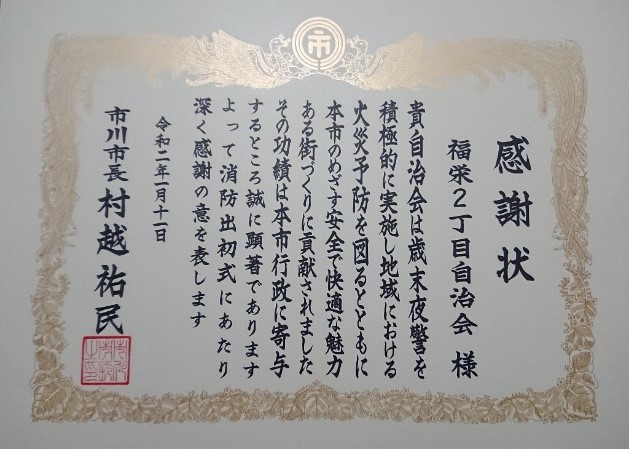 市
感謝状
福栄2丁目自治会 様
貴自治会は歳末夜警を
積極的に実施し地域における
火災予防を図るとともに
本市のめざす安全で快適な魅力
ある街づくりに貢献されました
その功績は本市行政に寄与
するところ誠に顕著であります
よって消防出初式にあたり
深く感謝の意を表します
令和二年一月十一日
市川市長 村越祐民